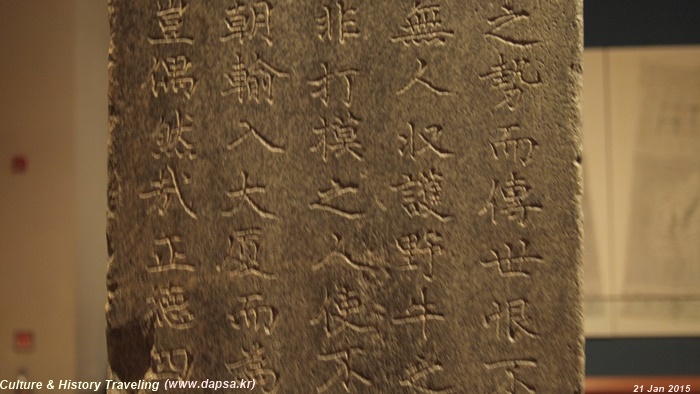 之勢而傳世恨不
無人収護野牛之
非打摸之人使不
朝輸入大厦而為
豈偶然哉正德四
Culture & History Traveling (www.dapsa.kr)
21 Jan 2015